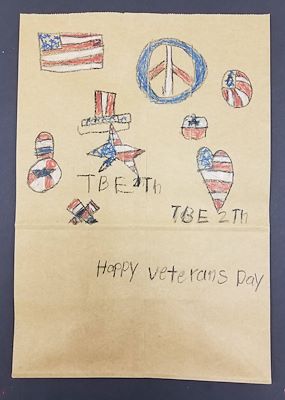 TBE 2Th
TBE 2Th
Happy Veterans Day